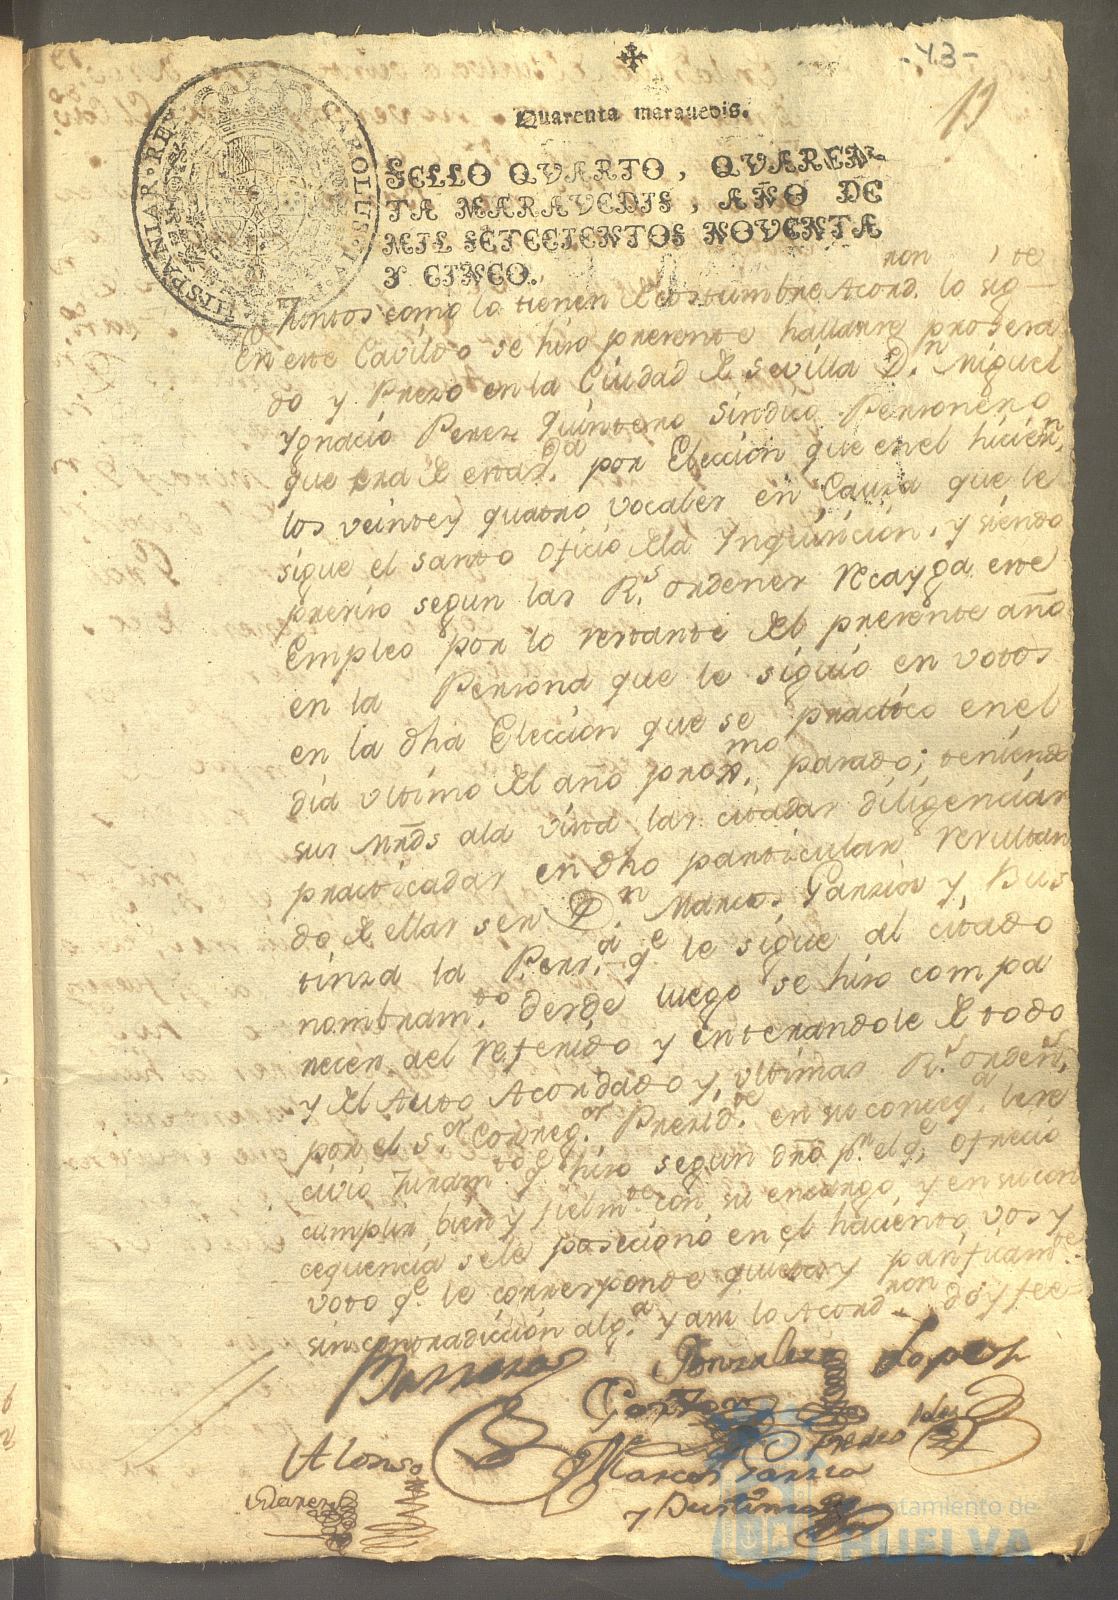 -43-
13
Quarenta marauedis.
SELLO QVARTO, QVAREN-
TA MARAVEDIS, AÑO DE
MIL SETECIENTOS NOVENTA
Y CINCO.
HISPANIAR. REX CAROLUS. IV.
Juntos como lo tienen de costumbre Acord.ron lo sig.te
En este Cavildo se hiso presente hallarse prosesa
do y Preso en la Ciudad de Sevilla D.n Miguel
Ygnacio Perez Quintero Sindico Personero
que era de esta V.a por Eleccion que en el hicier.n
los veinte y quatro vocales en Causa que le
sigue el santo oficio de la Ynquisicion, y siendo
presiso segun las R.s ordenes recayga este
Empleo por lo restante del presente año
en la Persona que le siguio en votos
en la dha Eleccion que se practico en el
dia ultimo del año prox.mo pasado; teniendo
sus Mrds ala vista las citadas diligencias
practicadas en dho particular resultan
do de ellas ser D.n Marcos Garzia y Bus
tinza la Pers.a q.e le sigue al citado
nombram.to desde luego se hiso compa
recer, al referido y enterandole de todo
y del Auto Acordado y ultimas R.s orden.s,
por el S.or Correg.or Presid.te en su conseq.a le re
civio Juram.to q.e hiso segun dro p.r el q.e ofrecio
cumplir bien y fielm.te con su encargo, y en su con
cequencia sele posecionó en el haciento, vos y
voto q.e le corresponde quieta y pasificam.te
sin contradiccion alg.a y asi lo Acord.ron doy fee
Barreras Gonzalez Lopez
Garzon
Alonso
Marcos Garzia
y Bustinza
Suarez
Ayuntamiento de
HUELVA